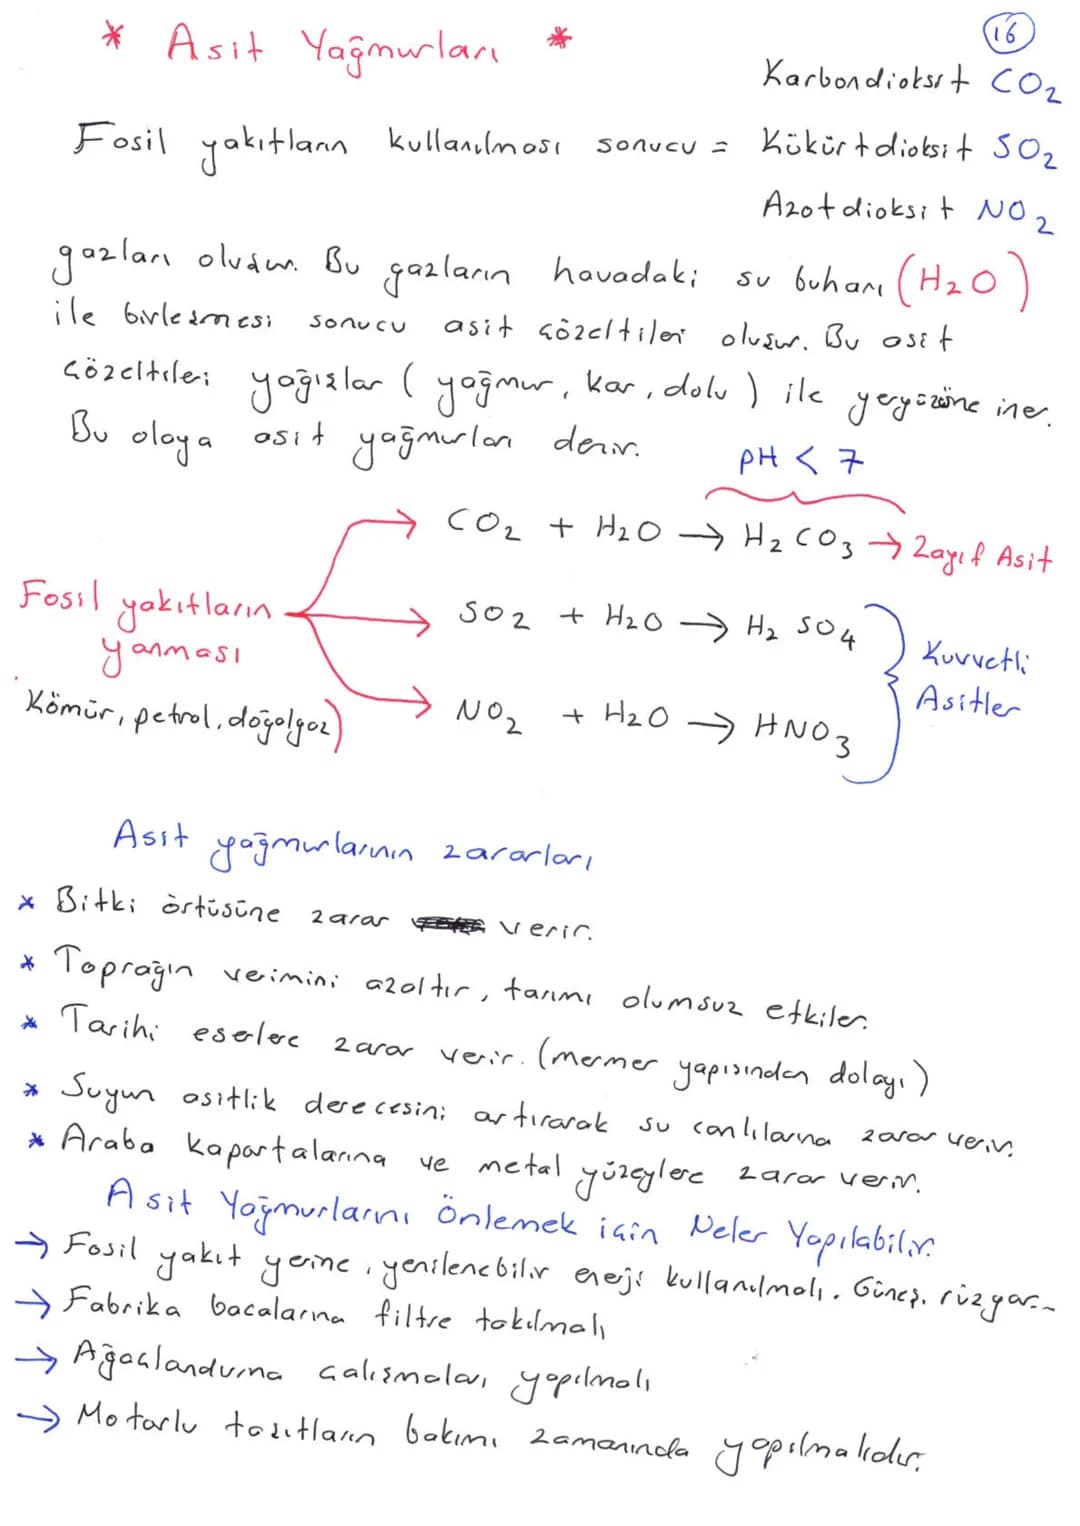 * Asit Yağmurları *
16
Karbondioksit CO2
Fosil yakıtların kullanılması sonucu = Kükürtdioksit SO2
Azotdioksit NO2
gazları oluşur. Bu gazların havadaki su buharı (H2O)
ile birleşmesi sonucu asit çözeltileri oluşur. Bu asit
çözeltileri yağışlar ( yağmur, kar, dolu ) ile yeryüzüne iner.
Bu olaya asit yağmurları denir.
pH < 7
CO2 + H2O → H2CO3 → Zayıf Asit
Fosil yakıtların
yanması
SO2 + H2O → H2SO4
Kuvvetli
Asitler
Kömür, petrol, doğalgaz)
NO2 + H2O → HNO3
Asit yağmurlarının zararları
* Bitki örtüsüne zarar verir.
* Toprağın verimini azaltır, tarımı olumsuz etkiler.
* Tarihi eserlere zarar verir. (mermer yapısından dolayı)
* Suyun asitlik derecesini artırarak su canlılarına zarar verir.
* Araba kaportalarına ve metal yüzeylere zarar verir.
Asit Yağmurlarını Önlemek için Neler Yapılabilir.
→ Fosil yakıt yerine, yenilenebilir enerji kullanılmalı. Güneş, rüzgar...
→ Fabrika bacalarına filtre takılmalı
→ Ağaçlandırma çalışmaları yapılmalı
→ Motorlu taşıtların bakımı zamanında yapılmalıdır.